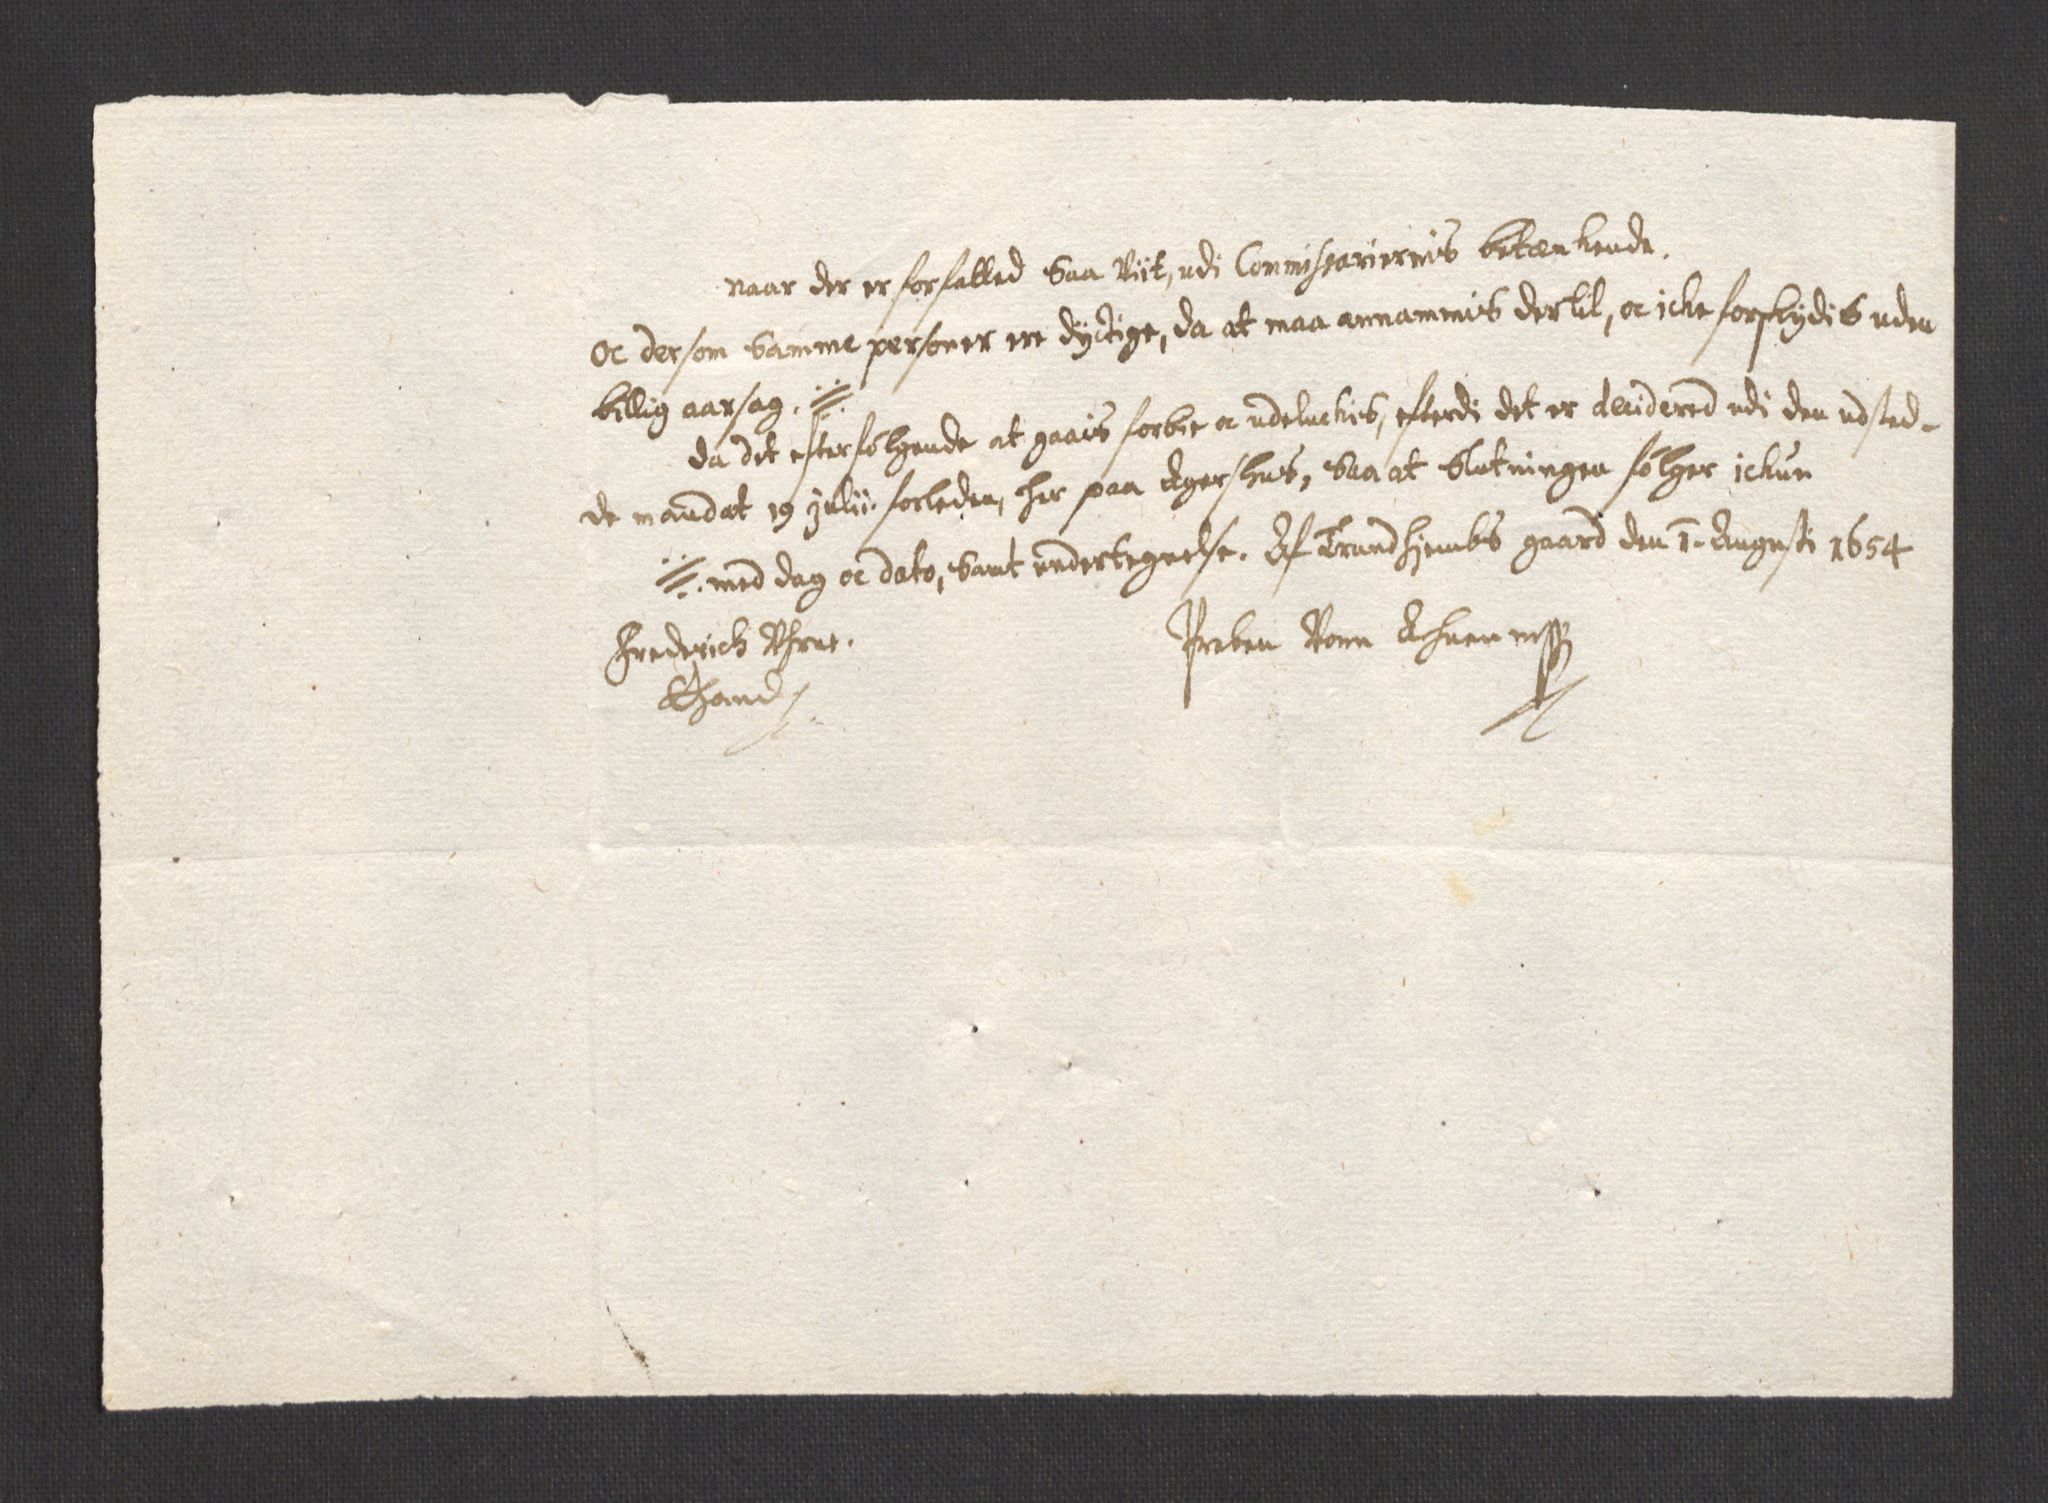 naar der er forfalled saa Viit, udi Commissariernis betænkende.
Oc dersom samme personer ere dyctige, da at maa annammis dertil, oc icke forskydis uden
billig aarsag. //
da det efterfølgende at gaais forbie oc udeluckis, efterdi det er decidered udi den udsted-
de mandat 19 Julii forleden, her paa Agershus, saa at Slutningen følger ickun
// med dag oc dato, samt undertegnelse. Af Trundhjembs gaard den 1. Augusti 1654
Frederich Vrne. Preben Vonn Ahnen mpp
Ehand